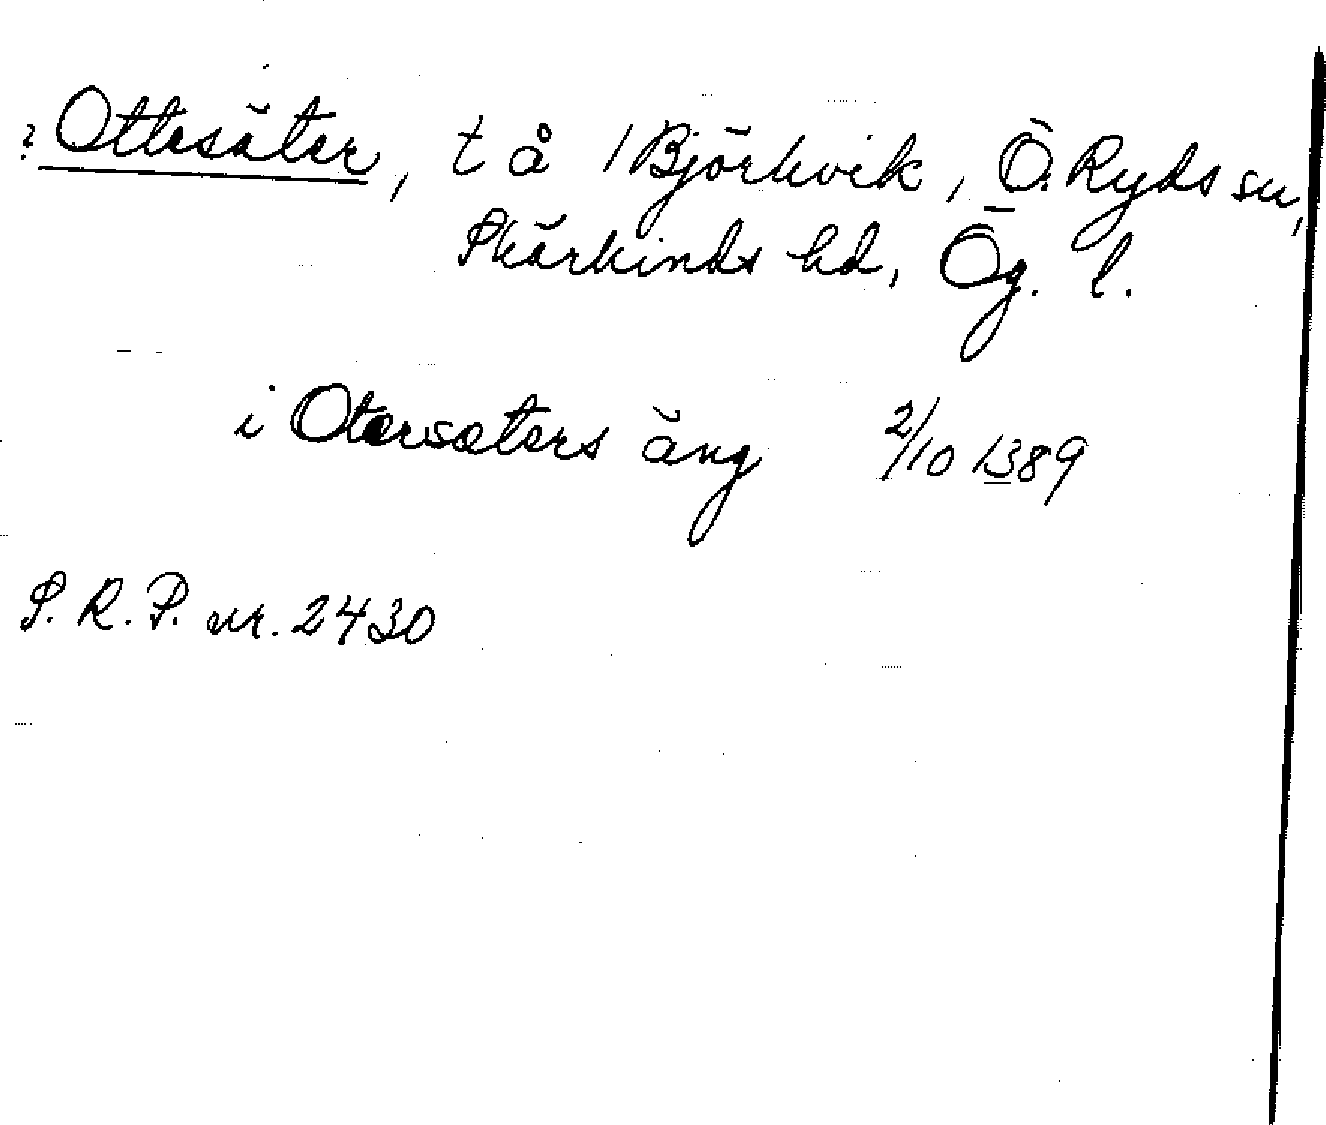 ? Ottesäter, t å 1 Björkvik, Ö. Ryds sn,
Skärkinds hd, Ög. l.
i Otersæters äng 2/10 1389
S. R. P. nr. 2430